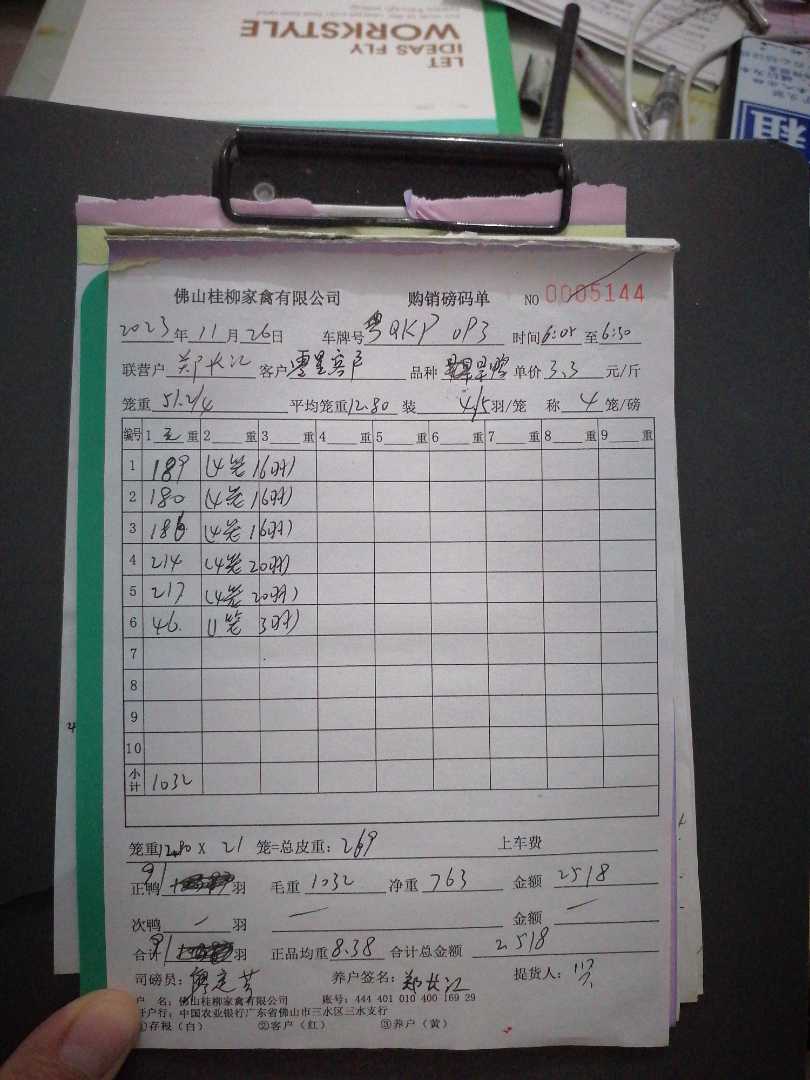 LET
IDEAS FLY
WORKSTYLE
租
佛山桂柳家禽有限公司 购销磅码单 NO 0005144
2023年11月26日 车牌号粤QKP 0P3 时间6:05至6:30
联营户 郑长江 客户 零星客户 品种 单价 3.3 元/斤
笼重 51.2/4 平均笼重12.80 装 4/5羽/笼 称 4 笼/磅
编号 1 毛 重 2 重 3 重 4 重 5 重 6 重 7 重 8 重 9 重
1 189 (4笼 16羽)
2 180 (4笼 16羽)
3 186 (4笼 16羽)
4 214 (4笼 20羽)
5 217 (4笼 20羽)
6 46. (1笼 3羽)
7
8
9
10
小计 1032
笼重12.80 X 21 笼=总皮重: 269 上车费
正鸭 91 羽 毛重 1032 净重 763 金额 2518
次鸭 — 羽 — 金额 —
合计 91 羽 正品均重 8.38 合计总金额 2518
司磅员: 养户签名: 郑长江 提货人:
户 名: 佛山桂柳家禽有限公司 账号: 444 401 010 400 169 29
开户行: 中国农业银行广东省佛山市三水区三水支行
①存根(白) ②客户(红) ③养户(黄)